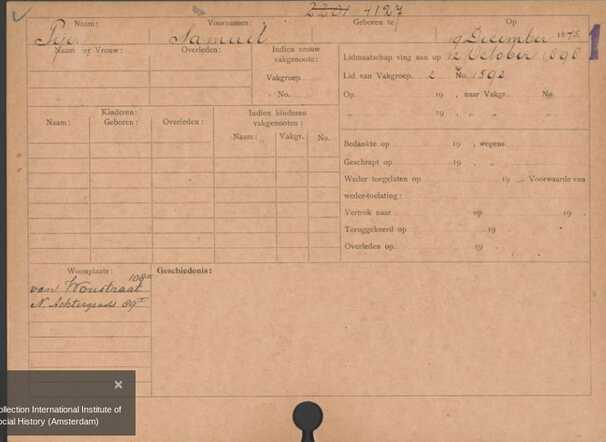 2201 4127
Naam: Voornamen: Geboren te Op
Samuel 19 December 1875
Naam der Vrouw: Overleden: Indien vrouw vakgenoote: Lidmaatschap ving aan op 12 October 1896
Vakgroep Lid van Vakgroep 2 No. 1592
No. Op 19 , naar Vakgr. No.
" 19 , " "
Kinderen: Indien kinderen vakgenooten:
Naam: Geboren: Overleden: Naam: Vakgr. No.
Bedankte op 19 , wegens
Geschrapt op 19 , "
Weder toegelaten op 19 Voorwaarde van
weder-toelating:
Vertrok naar op 19
Teruggekeerd op 19
Overleden op 19
Woonplaats: Geschiedenis:
van Woustraat 108
N. Achtergracht 89
×
ollection International Institute of
ocial History (Amsterdam)
1